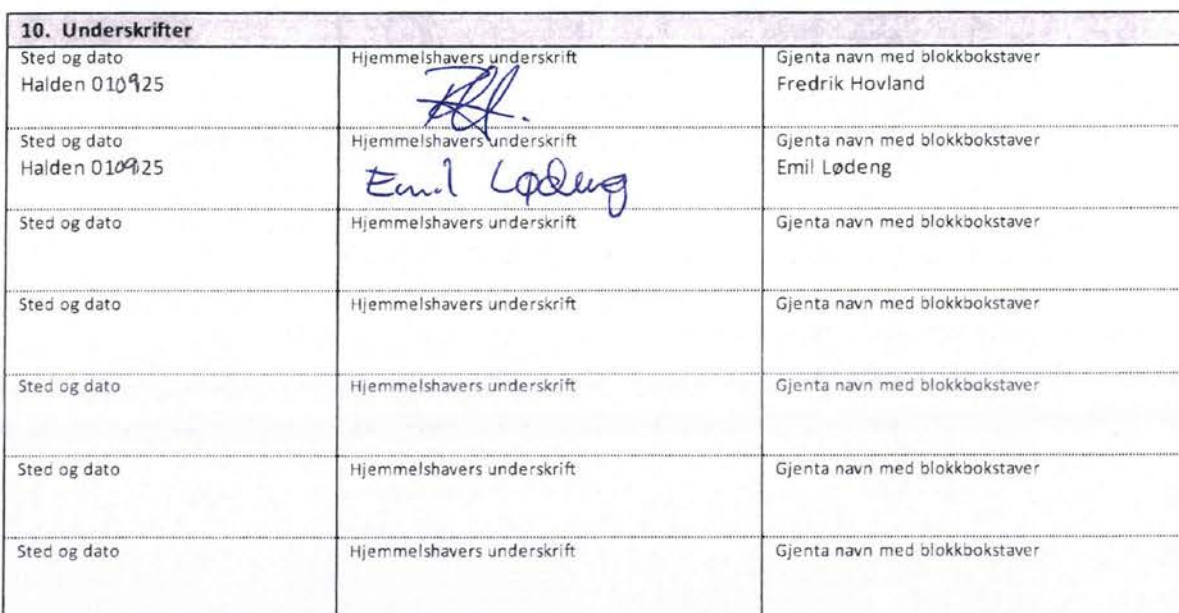 10. Underskrifter
Sted og dato
Halden 010925
Hjemmelshavers underskrift
Gjenta navn med blokkbokstaver
Fredrik Hovland
Sted og dato
Halden 010925
Hjemmelshavers underskrift
Emil Lødeng
Gjenta navn med blokkbokstaver
Emil Lødeng
Sted og dato
Hjemmelshavers underskrift
Gjenta navn med blokkbokstaver
Sted og dato
Hjemmelshavers underskrift
Gjenta navn med blokkbokstaver
Sted og dato
Hjemmelshavers underskrift
Gjenta navn med blokkbokstaver
Sted og dato
Hjemmelshavers underskrift
Gjenta navn med blokkbokstaver
Sted og dato
Hjemmelshavers underskrift
Gjenta navn med blokkbokstaver